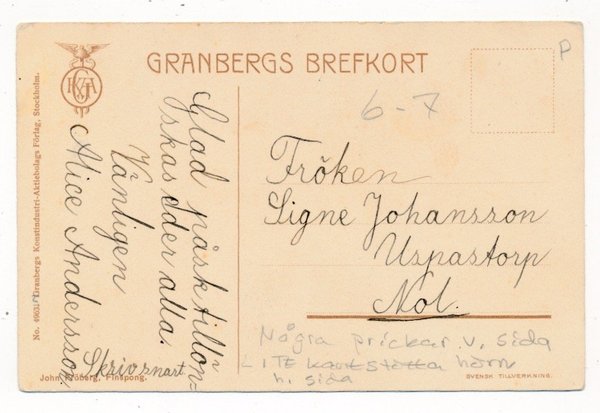 GRANBERGS BREFKORT
P
6-7
Glad påsk tillön-
skas Eder alla.
Vänligen
Alice Andersson.
Skriv snart
Fröken
Signe Johansson
Uspastorp
Nol.
Några prickar v. sida
LITE hörn
h. sida
Granbergs Konstindustri-Aktiebolags Förlag, Stockholm.
John Fröberg, Finspong.
SVENSK TILLVERKNING.